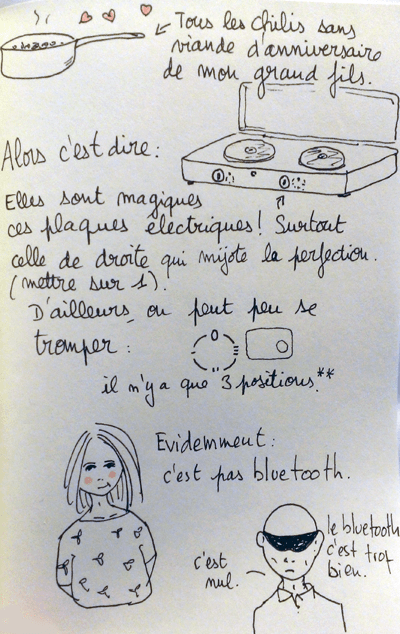 Tous les chilis sans
viande d'anniversaire
de mon grand fils.
Alors c'est dire:
Elles sont magiques
ces plaques électriques! Surtout
celle de droite qui mijote la perfection.
(mettre sur 1).
D'ailleurs, on peut peu se
tromper:
0
il n'y a que 3 positions.**
Evidemment:
c'est pas bluetooth.
c'est
nul.
le bluetooth
c'est trop
bien.